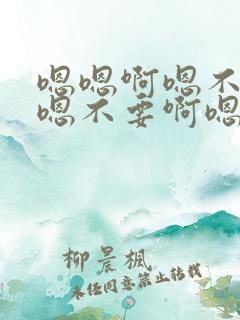 嗯嗯啊嗯不
嗯不要啊嗯
柳晨枫
未经同意禁止转载